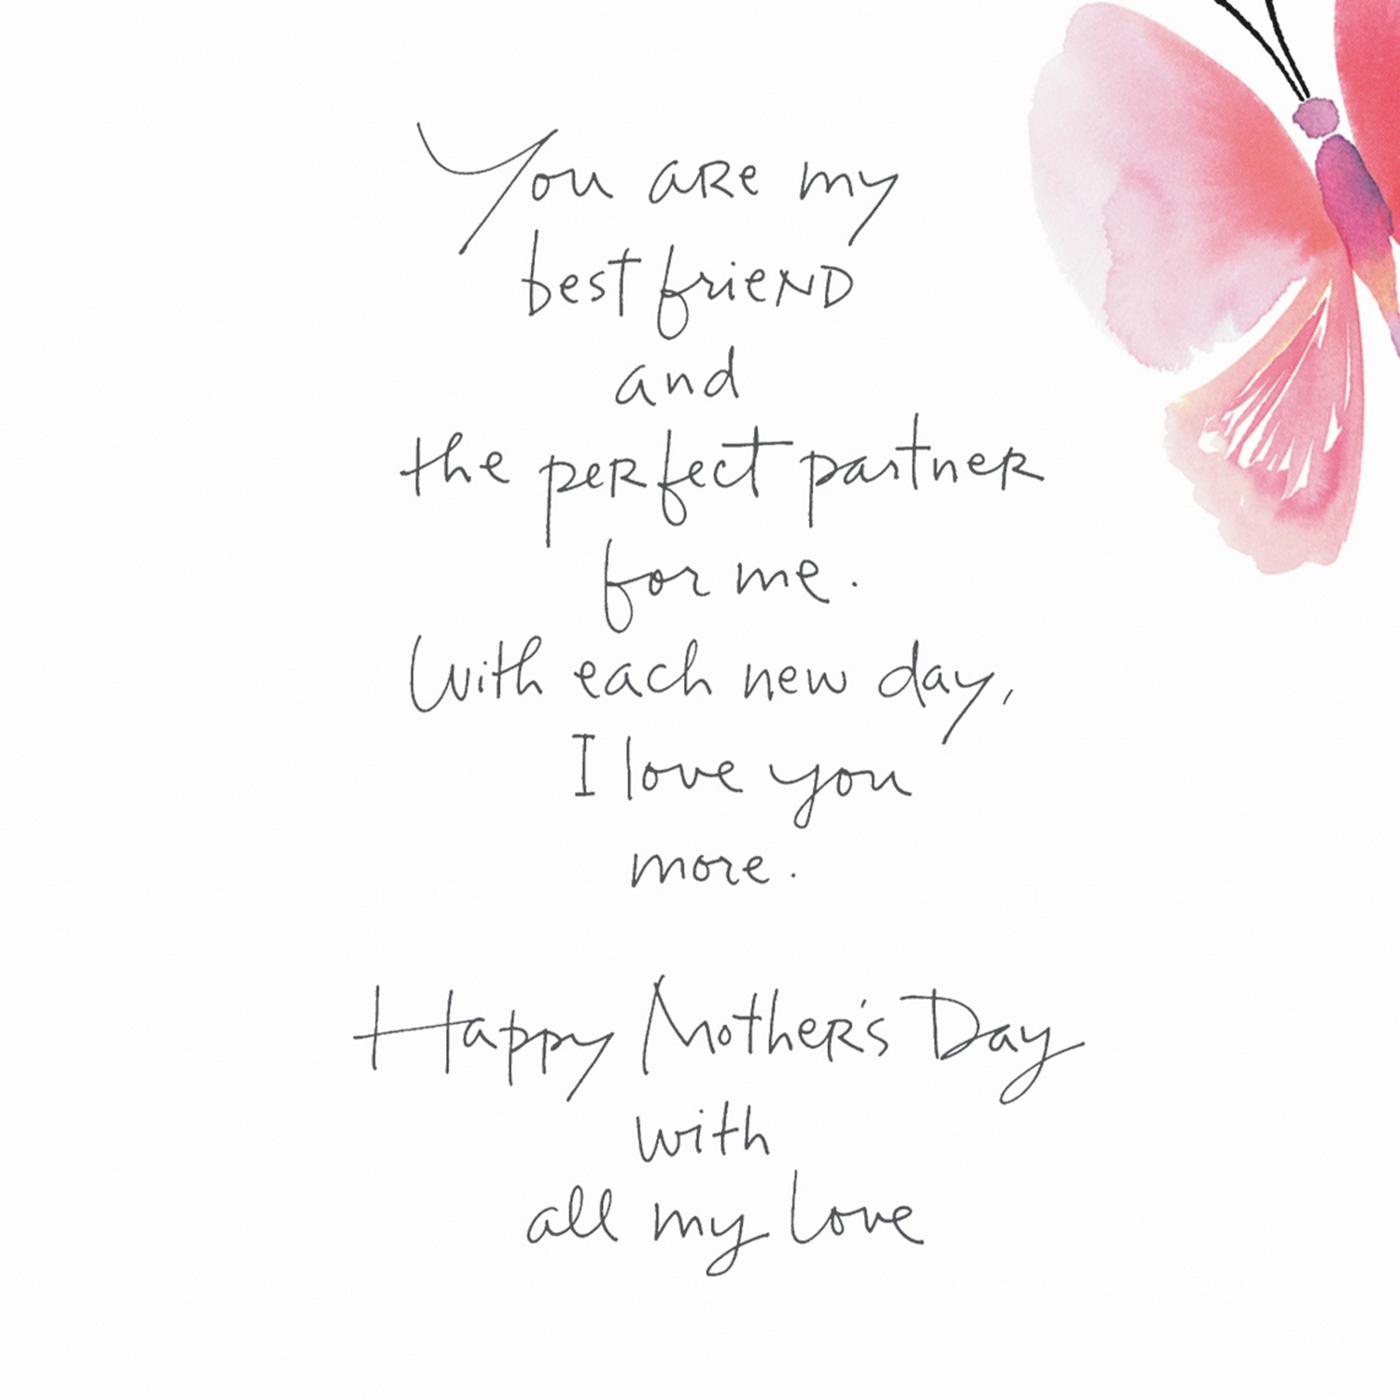 You are my
best friend
and
the perfect partner
for me.
With each new day,
I love you
more.
Happy Mother's Day
with
all my love